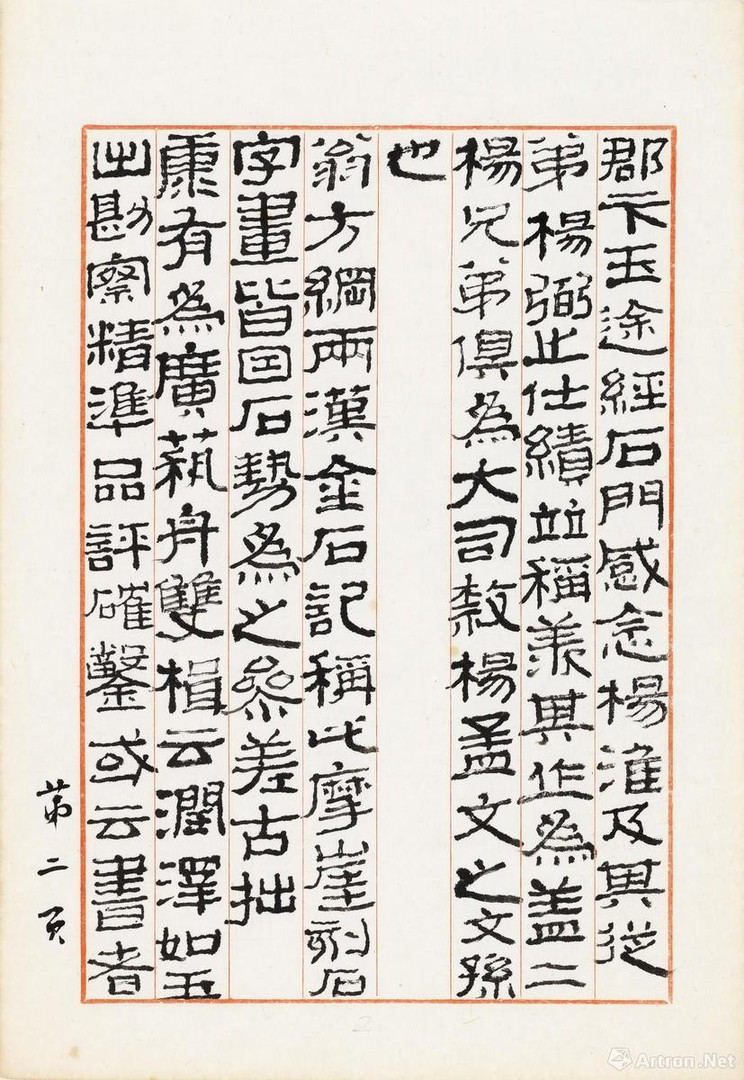 郡卞玉途經石門感念楊淮及其從
弟楊弼止仕績竝稱羡其作爲盖二
楊兄弟俱爲大司隸楊孟文之文孫
也
翁方綱兩漢金石記稱此摩崖刻石
字畫皆因石勢爲之參差古拙
康有爲廣藝舟雙楫云潤澤如玉
出勘察精準品評確鑿或云書者
第二頁
2
Artron.Net